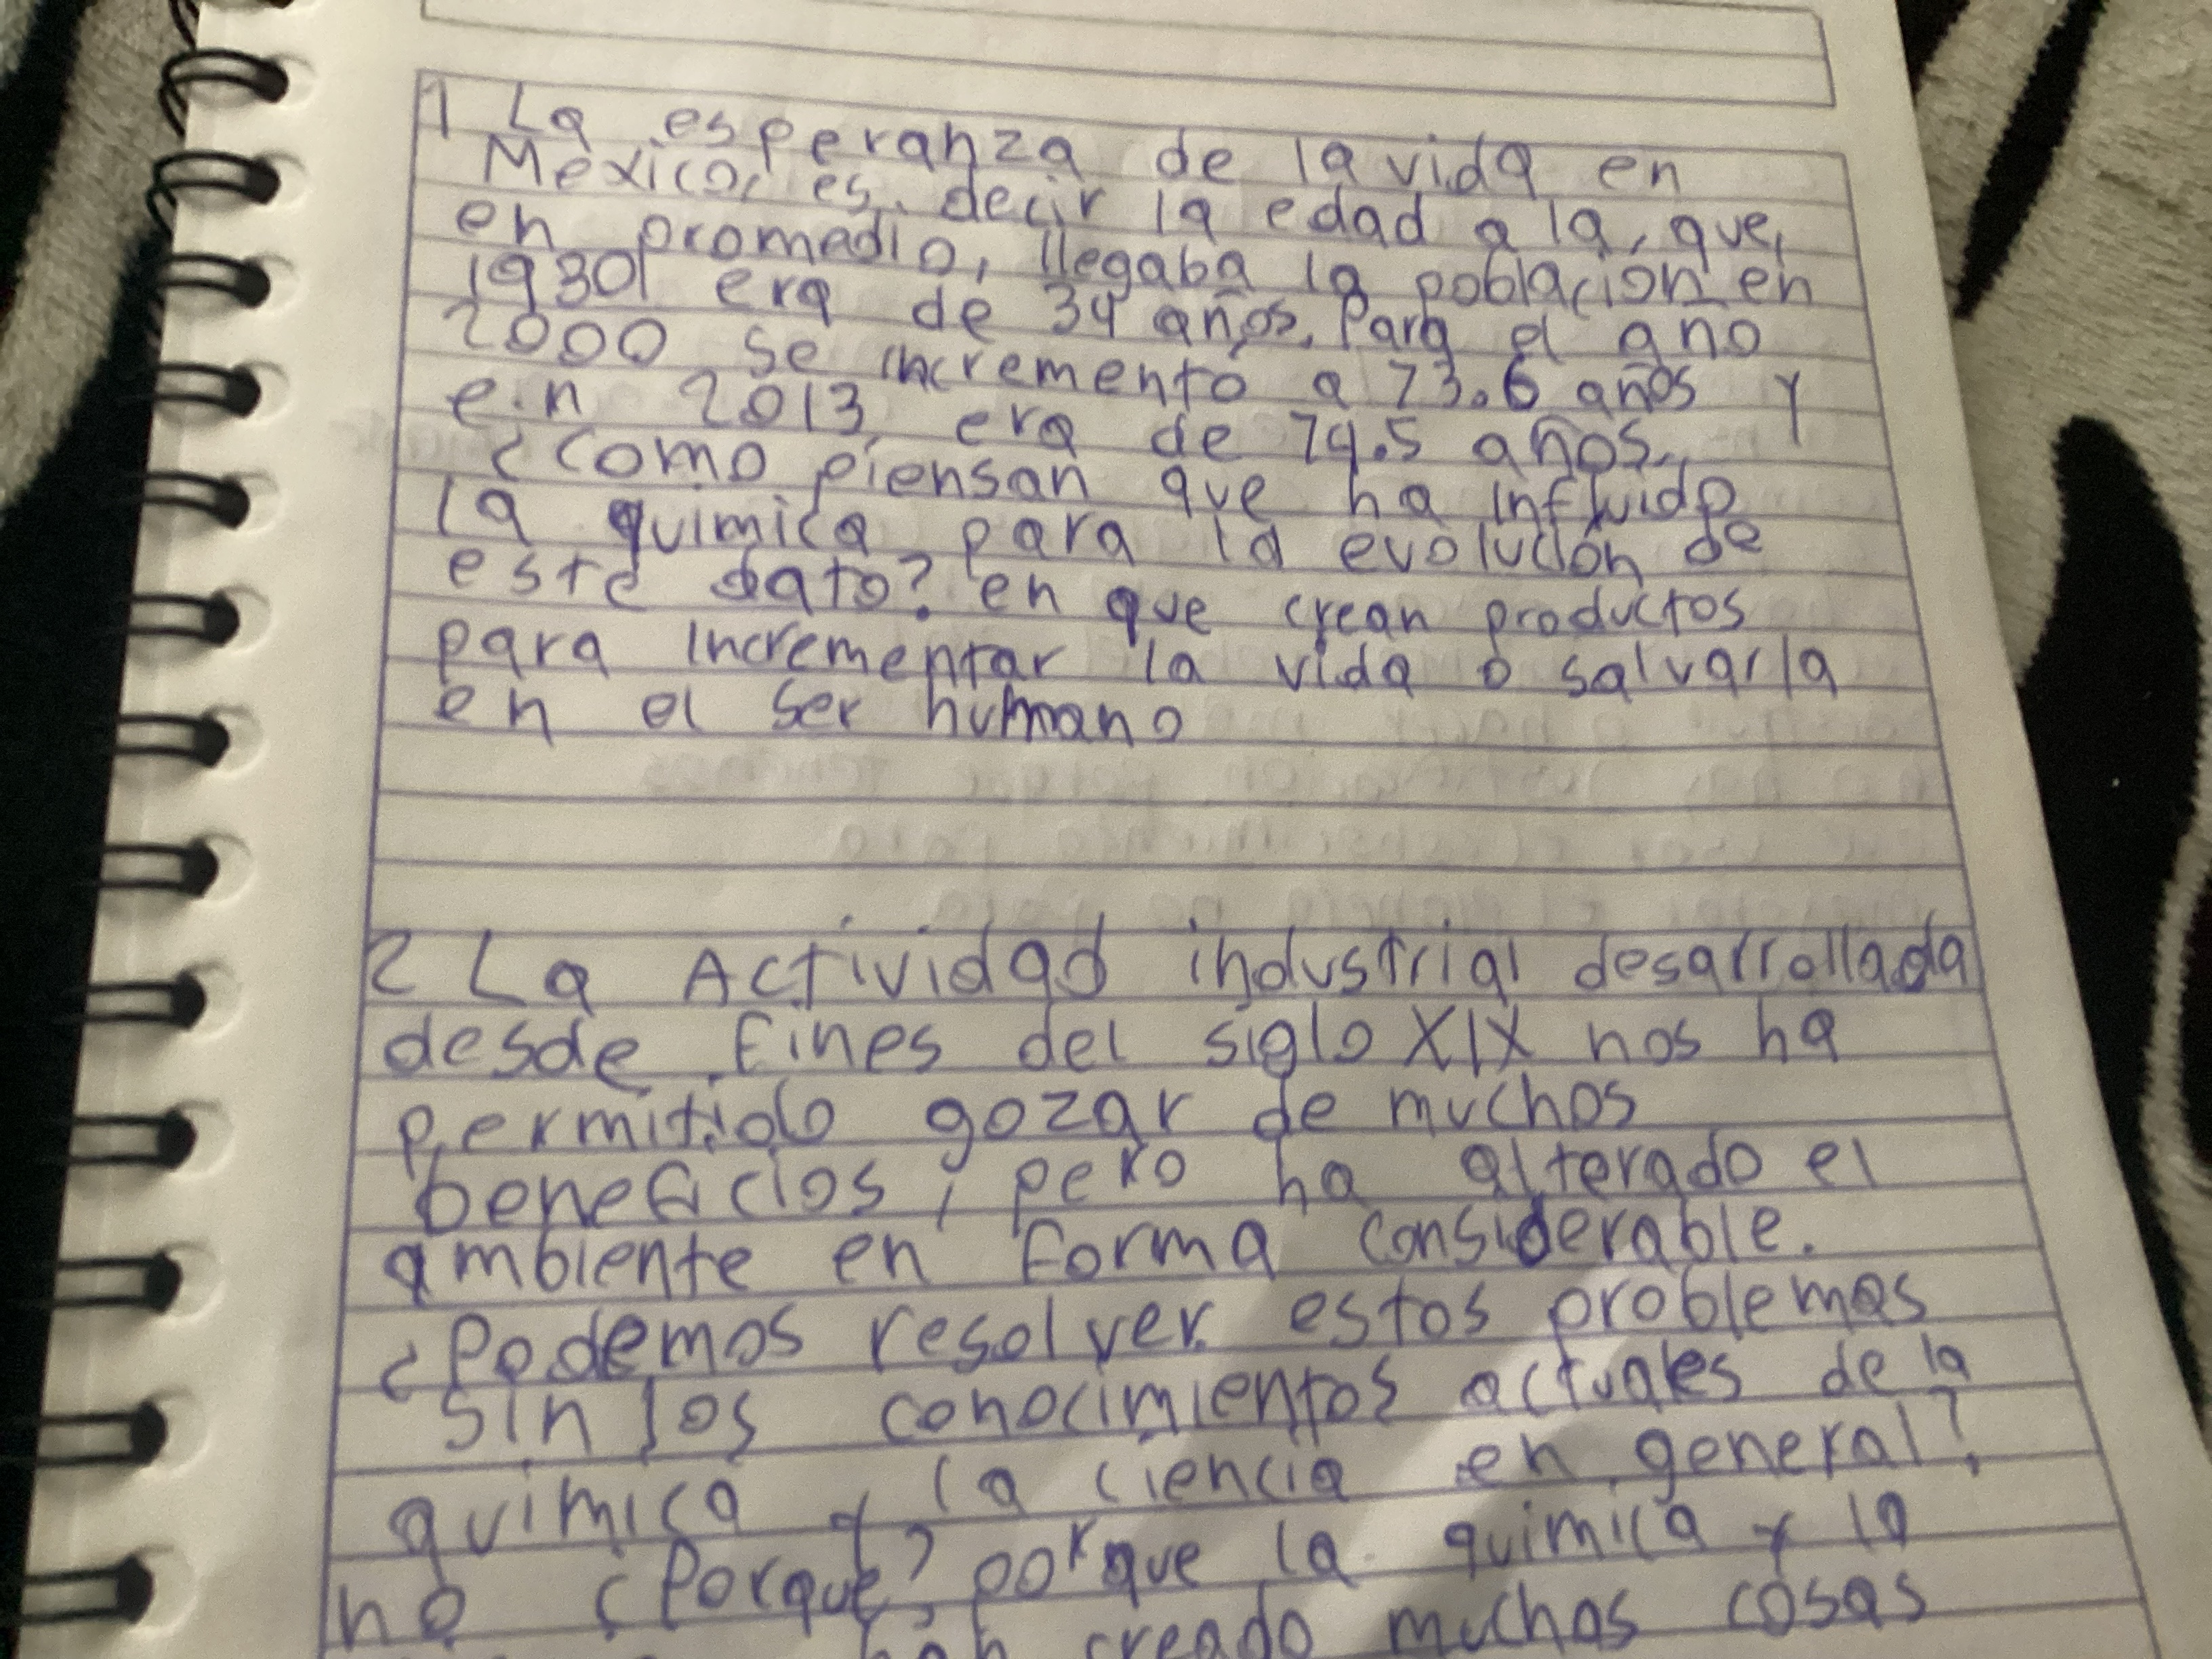 1 La esperanza de la vida en
Mexico, es decir la edad a la, que,
en promedio, llegaba la población en
1930, era de 34 años. Para el año
2000 se incrementó a 73.6 años y
en 2013 era de 74.5 años.
¿como piensan que ha influido
la quimica para la evolución de
este dato? en que crean productos
para incrementar la vida o salvarla
en el ser humano
2 La Actividad industrial desarrollada
desde fines del siglo XIX nos ha
permitido gozar de muchos
beneficios, pero ha alterado el
ambiente en forma considerable.
¿Podemos resolver estos problemas
sin los conocimientos actuales de la
quimica y la ciencia en general?
no ¿Porque? porque la quimica y la
han creado muchas cosas